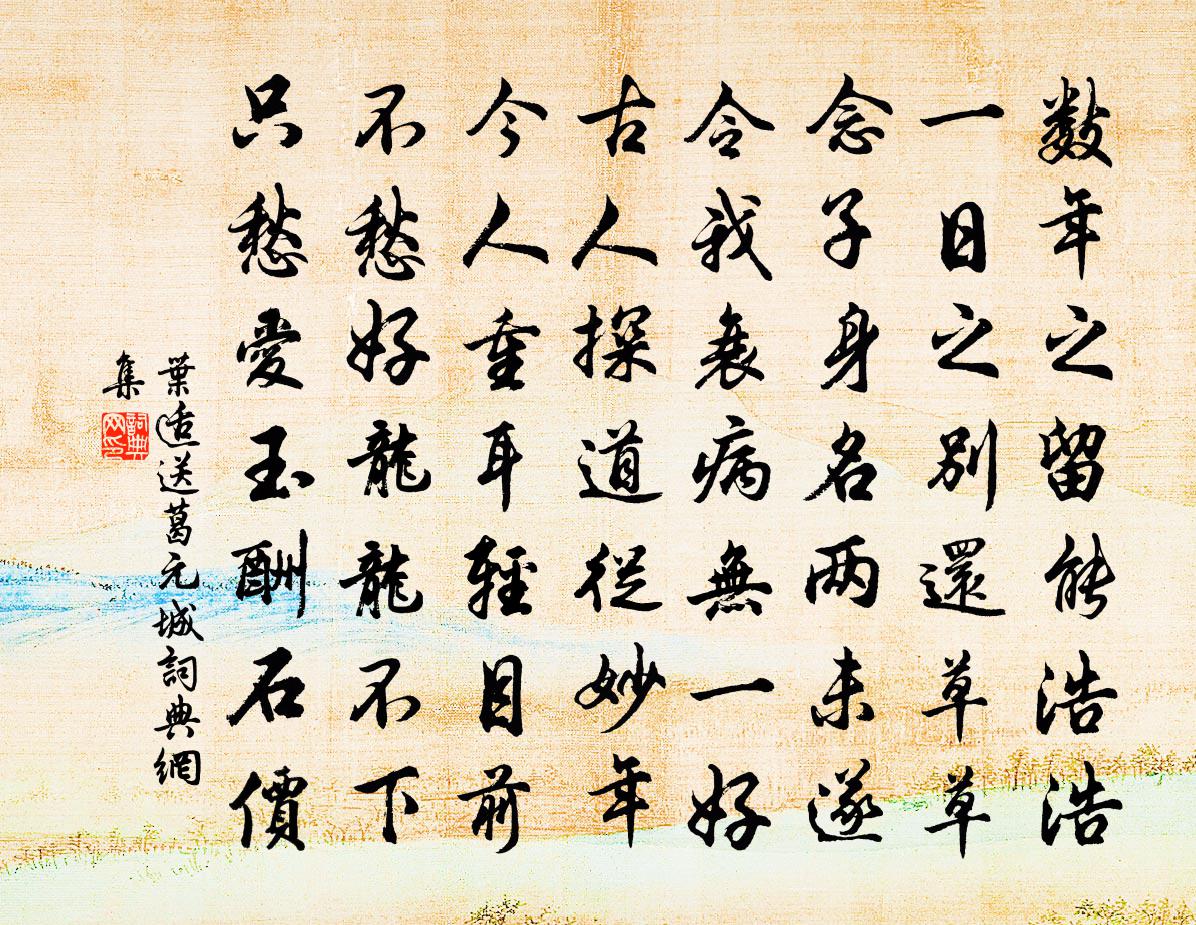 数年之留能浩浩
一日之別還草草
念子身名两未遂
令我衰病無一好
古人探道従妙年
今人重耳輕目前
不愁好龍龍不下
只愁愛玉酬石價
葉適送葛元城詞典網
集
詞典网印